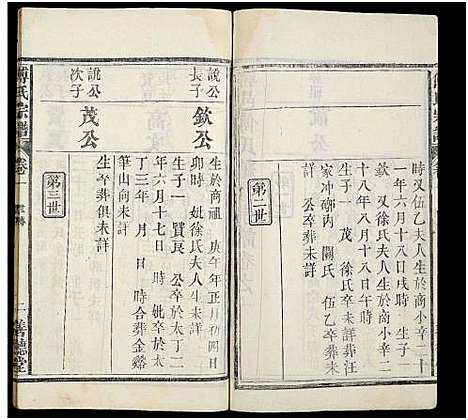 時 又伍乙夫人生於商小辛二十
一年六月十八日戌時 生子一
欽 又徐氏夫人生於商小辛二
十八年六月十八日午時
生子一 茂 徐氏卒未詳葬汪
家冲
公卒葬未詳
第二世
說公
長子
欽公
生於商祖庚午年正月初四日
卯時 妣徐氏夫人生未詳
生子一 賢 公卒於太丁二
年六月十七日 時 妣卒於太
丁三年 月 日 時合葬金雞
筆山向未詳
第三世
說公
次子
茂公
生卒葬俱未詳
傅氏宗譜
卷一
善聽堂